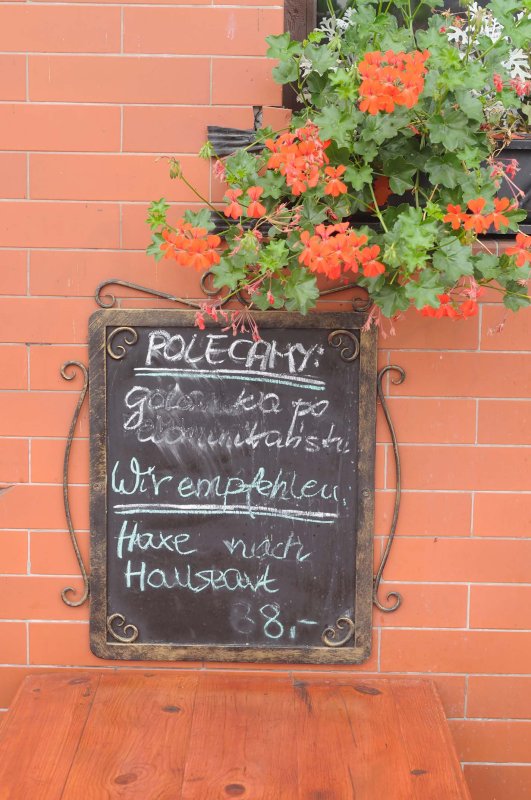 POLECAMY:
po
Wir empfehlen
Haxe nach
Hausart
38,-